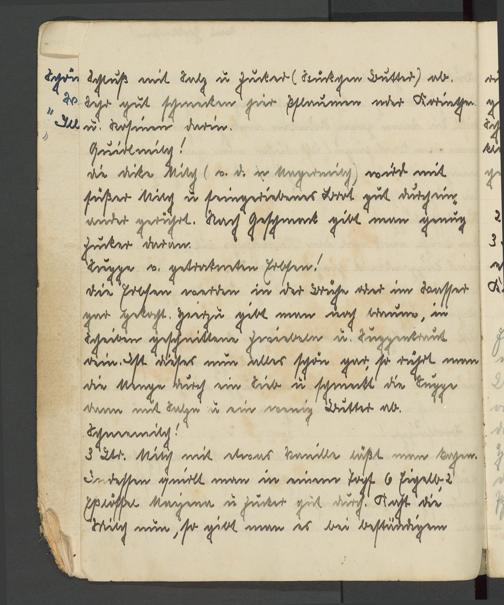 Schluß mit Salz u Zucker (Stückgen Butter) ab.
Sehr gut schmecken hier Pflaumen oder Korinthen
u. Rosinen darin.
Quirlmilch!
die dike Milch ( v. d. in Magermilch) wird mit
süßer Milch u feingeriebenes Brot gut durchein,
ander gerührt. Nach Geschmack gibt man genug
Zucker daran.
Suppe v. getrokneten Erbsen!
die Erbsen werden in der Brühe oder im Wasser
gar gekocht. Hierzu gibt man noch braune, in
Scheiben geschnittene Zwiebeln u. Suppenkraut
drin. Ist dieses nun alles schön gar, so rührt man
die Menge durch ein Sieb u schmeckt die Suppe
dann mit Salze u ein wenig Butter ab.
Schneemilch!
3 Ltr. Milch mit etwas Vanille läßt man kochen.
Indessen quirlt man in einem Topf 6 Eigelb 2
Eßlöffel Maizena u Zucker gut durch. Kocht die
Milch nun, so gibt man es bei beständigem